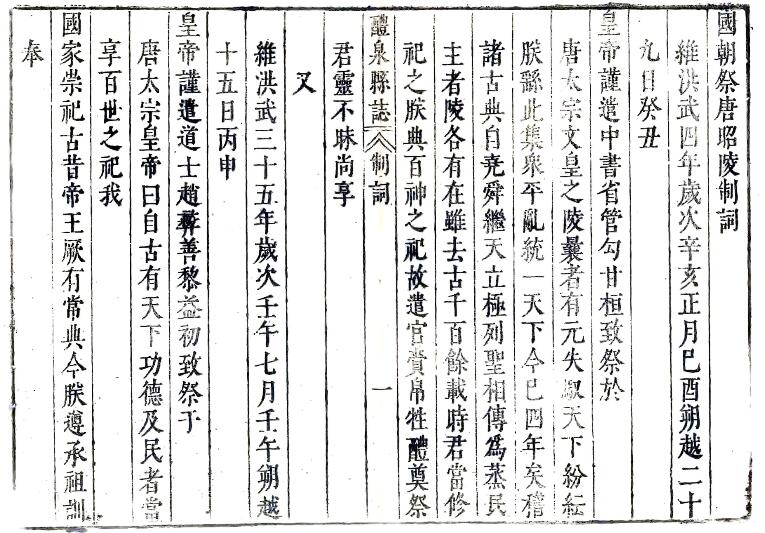 國朝祭唐昭陵制詞
維洪武四年歲次辛亥正月己酉朔越二十
九日癸丑
皇帝謹遣中書省管勾甘桓致祭於
唐太宗文皇之陵曩者有元失馭天下紛紜
朕繇此集衆平亂統一天下今已四年矣稽
諸古典自堯舜繼天立極列聖相傳爲蒸民
主者陵各有在雖去古千百餘載時君當修
祀之朕典百神之祀故遣官賫帛牲醴奠祭
醴泉縣誌 制詞 一
君靈不昧尚享
又
維洪武三十五年歲次壬午七月壬午朔越
十五日丙申
皇帝謹遣道士趙彝善黎益初致祭于
唐太宗皇帝曰自古有天下功德及民者當
享百世之祀我
國家崇祀古昔帝王厥有常典今朕遵承祖訓
奉